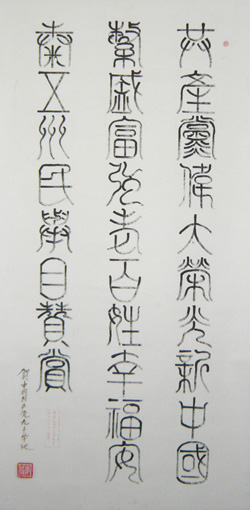 共產黨偉大榮光新中國
繁盛富強老百姓幸福安
泰五州民舉目贊賞